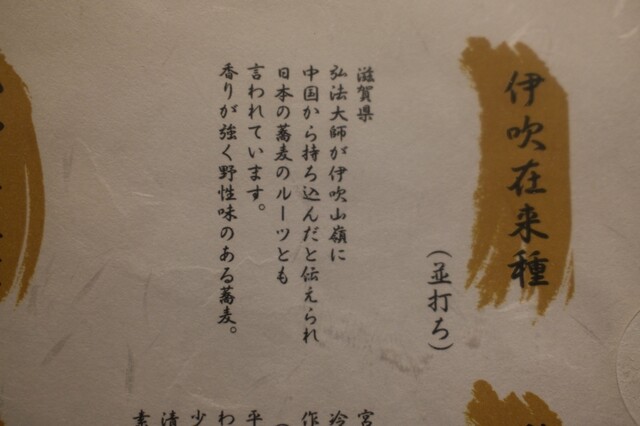 伊吹在来種
(並打ち)
滋賀県
弘法大師が伊吹山嶺に
中国から持ち込んだと伝えられ
日本の蕎麦のルーツとも
言われています。
香りが強く野性味のある蕎麦。
宮
作
平
わ
少
清
素